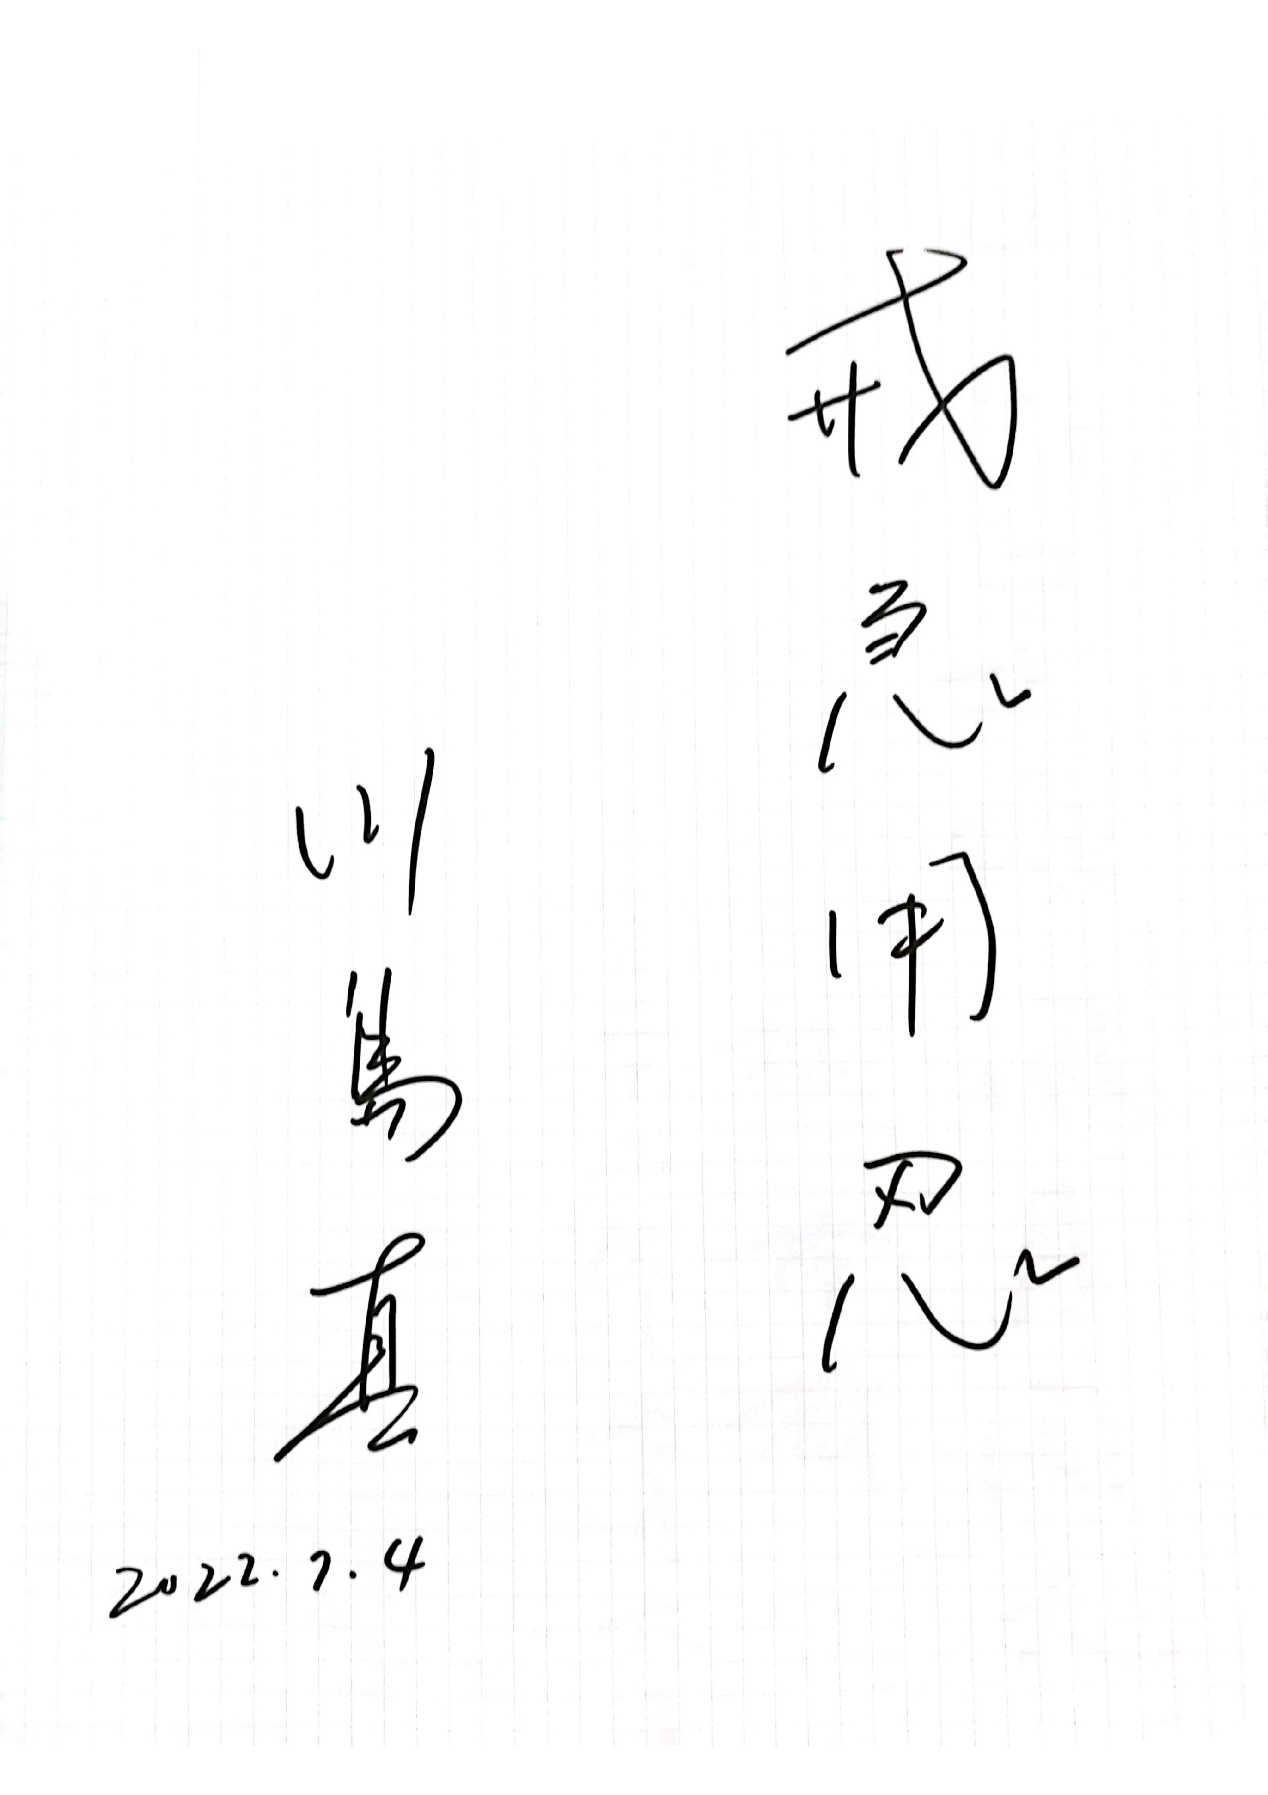 戒急用忍
川島真
2022.7.4